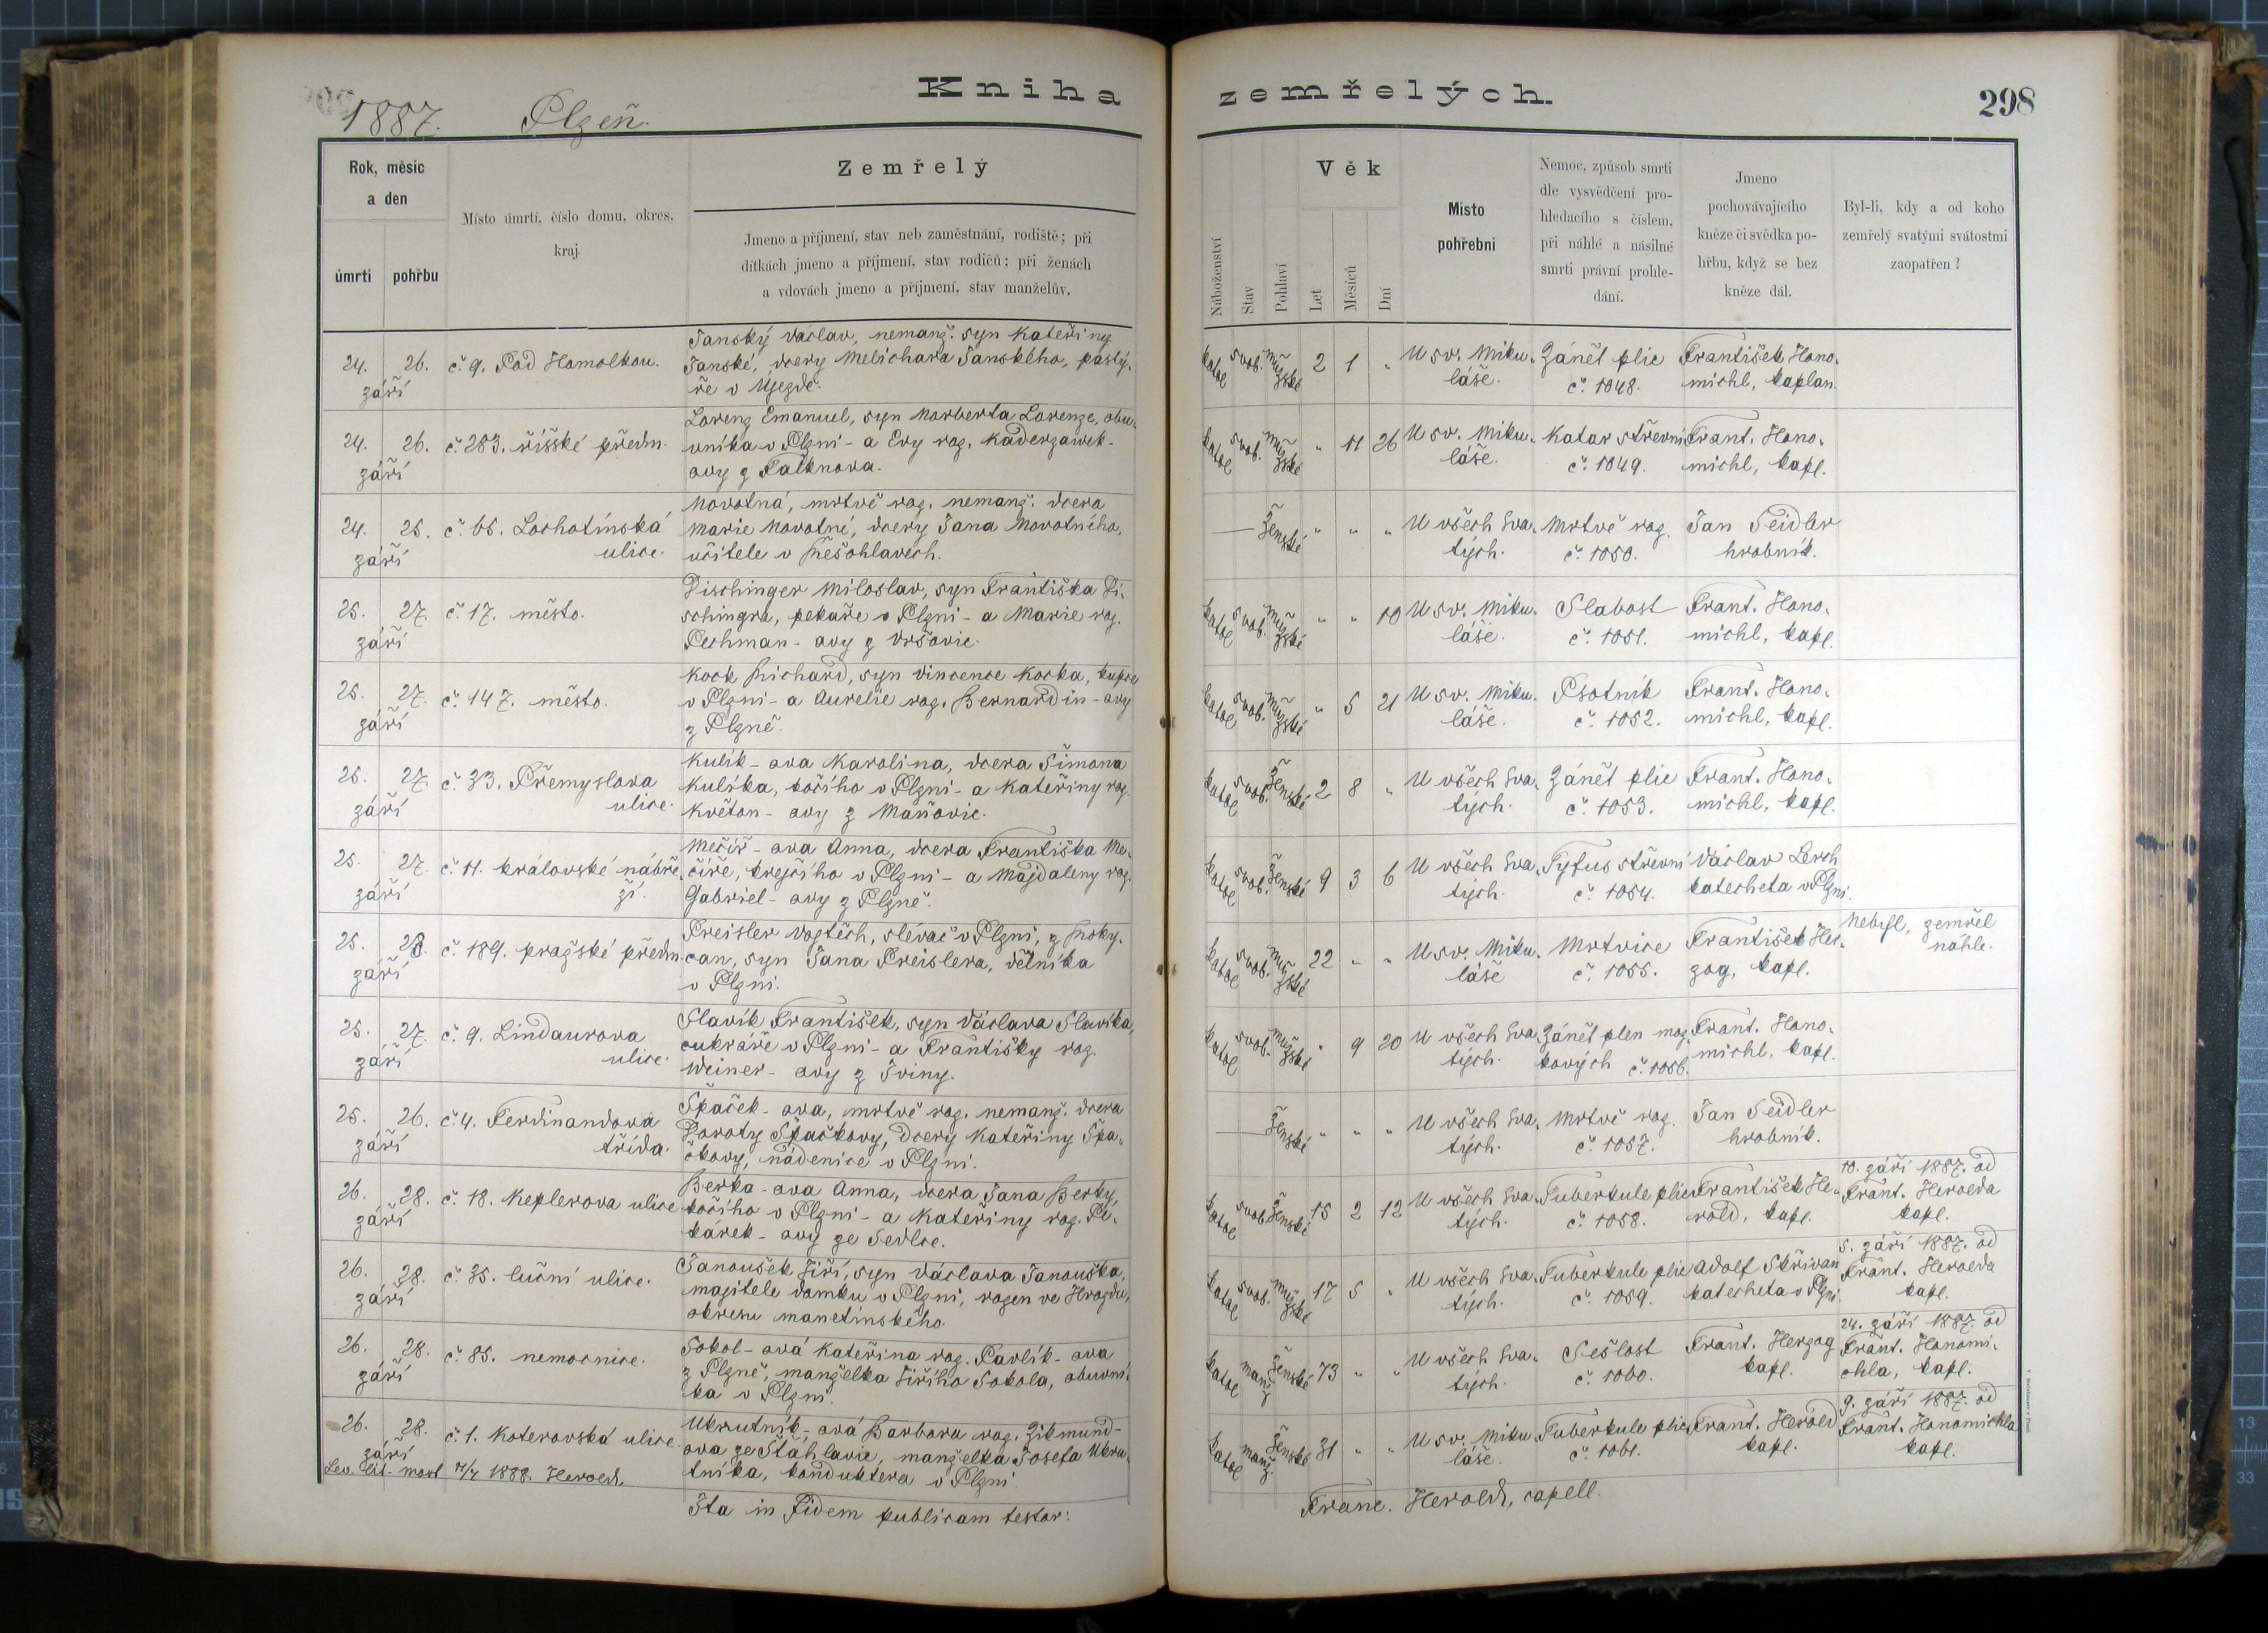 1887. Plzeň.
Kniha zemřelých.
298
Rok, měsíc a den
úmrtí
pohřbu
Místo úmrtí, číslo domu, okres, kraj.
Zemřelý
Jmeno a příjmení, stav neb zaměstnání, rodiště; při
dítkách jmeno a příjmení, stav rodičů; při ženách
a vdovách jmeno a příjmení, stav manželův.
Náboženství
Stav
Pohlaví
Věk
Let
Měsíců
Dní
Místo pohřební
Nemoc, způsob smrti
dle vysvědčení pro-
hledacího s číslem,
při náhlé a násilné
smrti právní prohle-
dání.
Jmeno
pochovávajícího
kněze či svědka po-
hřbu, když se bez
kněze dál.
Byl-li, kdy a od koho
zemřelý svatými svátostmi
zaopatřen?
24. 26. září
č. 9. Pod Homolkou.
Janský Václav, nemanž. syn Kateřiny
Janské, dcery Melichara Janského, pastý-
ře v Újezdě.
katol svob. mužské 2 1 "
U sv. Miku-
láše.
Zánět plic
č. 1048.
František Hono-
michl, kaplan.
24. 26. září
č. 283. říšské předm.
Lorenz Emanuel, syn Norberta Lorenze, obu-
vníka v Plzni - a Evy roz. Kaderzawek-
ovy z Falknova.
katol svob. mužské " 11 26
U sv. Miku-
láše.
Katar střevní
č. 1049.
Frant. Hono-
michl, kapl.
24. 25. září
č. 65. Lochotínská
ulice.
Novotná, mrtvě roz. nemanž. dcera
Marie Novotné, dcery Jana Novotného,
učitele v Řešohlavech.
— ženské " " "
U všech Sva-
tých.
Mrtvě roz.
č. 1050.
Jan Seidler
hrobník.
25. 27. září
č. 17. město.
Dischinger Miloslav, syn Františka Di-
schingra, pekaře v Plzni - a Marie roz.
Pechman - ovy z Vršovic.
katol svob. mužské " " 10
U sv. Miku-
láše.
Slabost
č. 1051.
Frant. Hono-
michl, kapl.
25. 27. září
č. 147. město.
Kock Richard, syn Vincence Kocka, kupce
v Plzni - a Aurelie roz. Bernardin - ovy
z Plzně.
katol svob. mužské " 5 21
U sv. Miku-
láše.
Psotník
č. 1052.
Frant. Hono-
michl, kapl.
25. 27. září
č. 33. Přemyslova
ulice.
Kulík - ova Karolina, dcera Šimona
Kulíka, kočího v Plzni - a Kateřiny roz.
Květon - ovy z Maňovic.
katol svob. ženské 2 8 "
U všech Sva-
tých.
Zánět plic
č. 1053.
Frant. Hono-
michl, kapl.
25. 27. září
č. 11. královské nábře-
ží.
Mečíř - ova Anna, dcera Františka Me-
číře, krejčího v Plzni - a Majdaleny roz.
Gabriel - ovy z Plzně.
katol svob. ženské 9 3 6
U všech Sva-
tých.
Tyfus střevní
č. 1054.
Václav Lerch
katecheta v Plzni.
25. 28. září
č. 189. pražské předm
Preisler Vojtěch, slévač v Plzni, z Roky-
can, syn Jana Preislera, dělníka
v Plzni.
katol svob. mužské 22 " "
U sv. Miku-
láše
Mrtvice
č. 1055.
František Her-
zog, kapl.
Nebyl, zemřel
náhle.
25. 27. září
č. 9. Lindaurova
ulice.
Slavík František, syn Václava Slavíka,
cukráře v Plzni - a Františky roz.
Weiner - ovy z Sviny.
katol svob. mužské " 9 20
U všech Sva-
tých.
Zánět plen moz-
kových č. 1056.
Frant. Hono-
michl, kapl.
25. 26. září
č. 4. Ferdinandova
třída.
Špaček - ova, mrtvě roz. nemanž. dcera
Doroty Špačkovy, dcery Kateřiny Špa-
čkovy, nádenice v Plzni.
— ženské " " "
U všech Sva-
tých.
Mrtvě roz.
č. 1057.
Jan Seidler
hrobník.
26. 28. září
č. 18. Keplerova ulice
Berka - ova Anna, dcera Jana Berky,
kočího v Plzni - a Kateřiny roz. Pě-
kárek - ovy ze Sedlce.
katol svob. ženské 15 2 12
U všech Sva-
tých.
Tuberkule plic
č. 1058.
František He-
rold, kapl.
10. září 1887. od
Frant. Herolda
kapl.
26. 28. září
č. 35. luční ulice.
Janoušek Jiří, syn Václava Janouška,
majitele domku v Plzni, rozen ve Hvozdu,
okresu manetínského.
katol svob. mužské 17 5 "
U všech Sva-
tých.
Tuberkule plic
č. 1059.
Adolf Skřivan
katecheta v Plzni.
5. září 1887. od
Frant. Herolda
kapl.
26. 28. září
č. 85. nemocnice.
Sokol - ová Kateřina roz. Pavlík - ova
z Plzně, manželka Jiřího Sokola, obuvní-
ka v Plzni.
katol manž ženské 73 " "
U všech Sva-
tých.
Sešlost
č. 1060.
Frant. Herzog
kapl.
24. září 1887. od
Frant. Honomi-
chla, kapl.
26. 28. září
č. 1. Koterovská ulice.
Ukrutník - ová Barbora roz. Zikmund -
ova ze Šťáhlavic, manželka Josefa Ukru-
tníka, konduktera v Plzni.
katol manž. ženské 31 " "
U sv. Miku
láše.
Tuberkule plic
č. 1061.
Frant. Herold
kapl.
9. září 1887. od
Frant. Honomichla
kapl.
1888 Herold.
Ita in Fidem publicam testor:
Franc. Herold, capell.